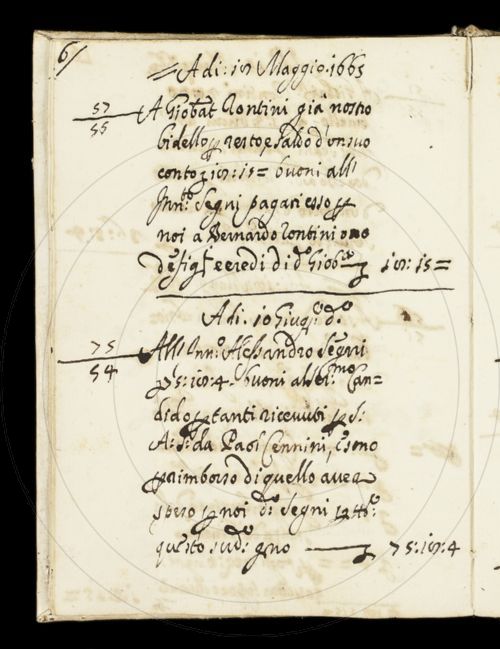 6/
Adi: 10 Maggio 1665
57
55
A Giobat Rontini già nostro
bidello p resto, e saldo d'un suo
conto 10: 15= buoni all'
Inn.to Segni pagati esso p
noi a Bernardo Rontini uno
de figli eredi di do Giobta 10: 15=
Adi: 10 Giugo do
75
54
All' Inno Alessandro Segni
75: 10: 4 buoni al Can=
dido p tanti ricevuti p S:
A: S: da Paol Cennini, e sono
p rimborso di quello avea
speso p noi do Segni
questo sudo gno 75: 10: 4